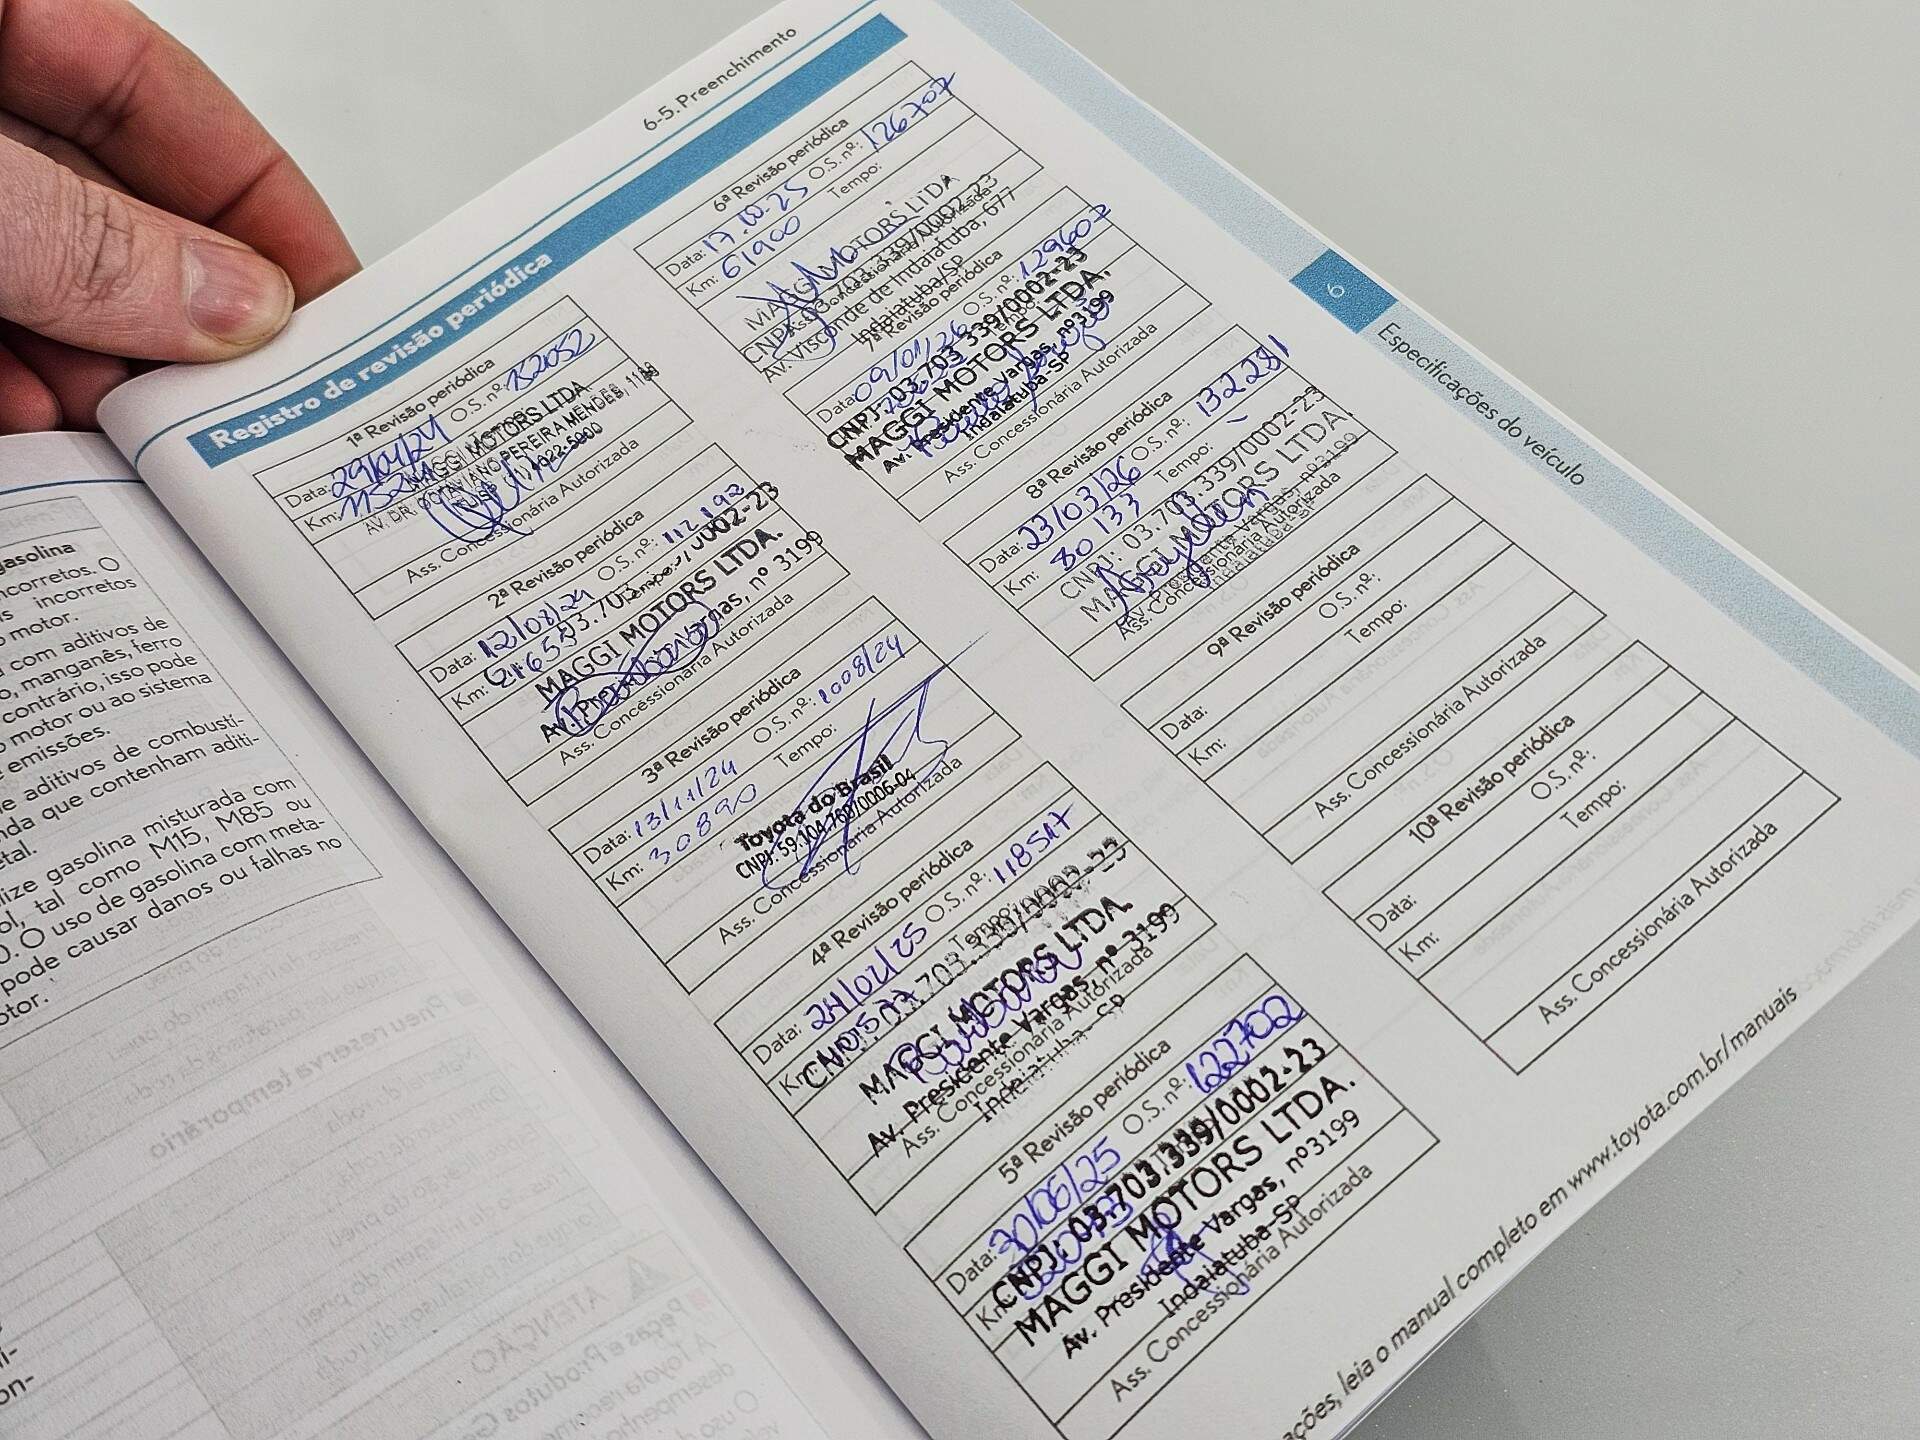 6-5. Preenchimento
Registro de revisão periódica
1ª Revisão periódica
Data: 29/04/24 O.S. nº:
Km:
MAGGI MOTORS LTDA.
AV. DR. OCTAVIANO PEREIRA MENDES,
4022-5000
Ass. Concessionária Autorizada
2ª Revisão periódica
Data: 12/08/24 O.S. nº: 112192
Km: Tempo:
MAGGI MOTORS LTDA.
nº 3199
Ass. Concessionária Autorizada
3ª Revisão periódica
Data: 13/11/24 O.S. nº: 1008/24
Km: 30890 Tempo:
Toyota do Brasil
CNPJ: 59.104.760/0006-04
Ass. Concessionária Autorizada
4ª Revisão periódica
Data: 24/02/25 O.S. nº: 118517
Km: Tempo:
MAGGI MOTORS LTDA.
Av. Presidente Vargas, nº 3199
Ass. Concessionária Autorizada
Indaiatuba - SP
5ª Revisão periódica
Data: 30/06/25 O.S. nº: 122702
Km:
CNPJ: 03.703.339/0002-23
MAGGI MOTORS LTDA.
Av. Presidente Vargas, nº3199
Indaiatuba-SP
Ass. Concessionária Autorizada
6ª Revisão periódica
Data: 17.10.25 O.S. nº: 126707
Km: 61900 Tempo:
MAGGI MOTORS LTDA
CNPJ 03.703.339/0002-23
Av. Visconde de Indaiatuba, 677
Indaiatuba/SP
7ª Revisão periódica
Data: 09/01/26 O.S. nº: 129607
CNPJ: 03.703.339/0002-23
MAGGI MOTORS LTDA.
Av. Presidente Vargas, nº3199
Indaiatuba-SP
Ass. Concessionária Autorizada
8ª Revisão periódica
Data: 23/03/26 O.S. nº: 132281
Km: 80133 Tempo:
CNPJ: 03.703.339/0002-23
MAGGI MOTORS LTDA.
Av. Presidente Vargas, nº3199
Ass. Concessionária Autorizada
Indaiatuba-SP
9ª Revisão periódica
Data: O.S. nº:
Km: Tempo:
Ass. Concessionária Autorizada
10ª Revisão periódica
Data: O.S. nº:
Km: Tempo:
Ass. Concessionária Autorizada
6
Especificações do veículo
ações, leia o manual completo em www.toyota.com.br/manuais
gasolina
incorretos. O
is incorretos
o motor.
com aditivos de
o, manganês, ferro
contrário, isso pode
motor ou ao sistema
e emissões.
e aditivos de combustí-
nda que contenham aditi-
etal.
lize gasolina misturada com
ol, tal como M15, M85 ou
0. O uso de gasolina com meta-
pode causar danos ou falhas no
otor.